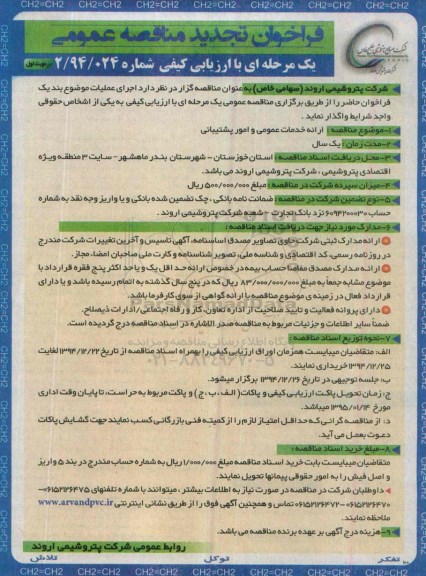 CH2=CH2 CH2=CH2 CH2=CH2 CH2=CH2 CH2=CH2 CH2=CH2
فراخوان تجدید مناقصه عمومی
یک مرحله ای با ارزیابی کیفی شماره ۲/۹۴/۰۲۴
شرکت پتروشیمی اروند (سهامی خاص) به عنوان مناقصه گزار در نظر دارد اجرای عملیات موضوع بند یک
فراخوان حاضر را از طریق برگزاری مناقصه عمومی یک مرحله ای با ارزیابی کیفی به یکی از اشخاص حقوقی
واجد شرایط واگذار نماید.
۱-موضوع مناقصه: ارائه خدمات عمومی و امور پشتیبانی
۲-مدت زمان: یک سال
۳-محل دریافت اسناد مناقصه: استان خوزستان - شهرستان بندر ماهشهر - سایت ۳ منطقه ویژه
اقتصادی پتروشیمی، شرکت پتروشیمی اروند می باشد.
۴-میزان سپرده شرکت در مناقصه: مبلغ ۵۰۰/۰۰۰/۰۰۰ ریال
۵-نوع تضمین شرکت در مناقصه: ضمانت نامه بانکی، چک تضمین شده بانکی و یا واریز وجه نقد به شماره
حساب ۶۰۹۴۲۰۰۰۳۰ نزد بانک تجارت - شعبه شرکت پتروشیمی اروند.
۶-مدارک مورد نیاز جهت دریافت اسناد مناقصه:
ارائه مدارک ثبتی شرکت حاوی تصاویر مصدق اساسنامه، آگهی تاسیس و آخرین تغییرات شرکت مندرج
در روزنامه رسمی، کد اقتصادی و شناسه ملی، تصویر شناسنامه و کارت ملی صاحبان امضا، مجاز.
ارائه مدارک مصدق مفاصا حساب بیمه در خصوص ارائه حداقل یک و یا حداکثر پنج فقره قرارداد با
موضوع مشابه جمعا به مبلغ ۸۳/۰۰۰/۰۰۰/۰۰۰ ریال که در پنج سال گذشته به اتمام رسیده باشد و یا دارای
قرارداد فعال در زمینه ی موضوع مناقصه با ارائه گواهی از سوی کارفرما باشد.
دارای پروانه فعالیت و تایید صلاحیت از اداره تعاون، کار و رفاه اجتماعی/ادارات ذیصلاح.
ضمناً سایر اطلاعات و جزئیات مربوط به مناقصه صدرالاشاره در اسناد مناقصه درج گردیده است.
۷-نحوه توزیع اسناد مناقصه:
الف: متقاضیان میبایست همزمان اوراق ارزیابی کیفی را بهمراه اسناد مناقصه از تاریخ ۱۳۹۴/۱۲/۲۲ لغایت
۱۳۹۴/۱۲/۲۵ خریداری نمایند.
ب: جلسه توجیهی در تاریخ ۱۳۹۴/۱۲/۲۶ برگزار میشود.
ج: زمان تحویل پاکت ارزیابی کیفی و پاکات (الف، ب، ج) و پاکت مربوط به حراست، تا پایان وقت اداری
مورخ ۱۳۹۵/۰۱/۱۴ میباشد.
د: از مناقصه گرانی که حداقل امتیاز لازم را از کمیته فنی بازرگانی کسب نمایند جهت گشایش پاکات
دعوت بعمل می آید.
۸-مبلغ خرید اسناد مناقصه:
متقاضیان میبایست بابت خرید اسناد مناقصه مبلغ ۱/۰۰۰/۰۰۰ ریال به شماره حساب مندرج در بند ۵ واریز
و اصل فیش را به امور حقوقی پیمانها تحویل نمایند.
داوطلبان شرکت در مناقصه در صورت نیاز به اطلاعات بیشتر، میتوانند با شماره تلفنهای ۰۶۱۵۲۱۳۶۴۷۵-
۰۶۱۵۲۱۳۶۴۷۰-۰۶۱۵۲۱۳۶۴۷۲ تماس و همچنین آگهی فوق را از طریق نشانی اینترنتی www.arvandpvc.ir
ملاحظه نمایند.
۹-هزینه درج آگهی بر عهده برنده مناقصه می باشد.
روابط عمومی شرکت پتروشیمی اروند
تفکر توکل تلاش
CH2=CH2 CH2=CH2 CH2=CH2 CH2=CH2 CH2=CH2 CH2=CH2